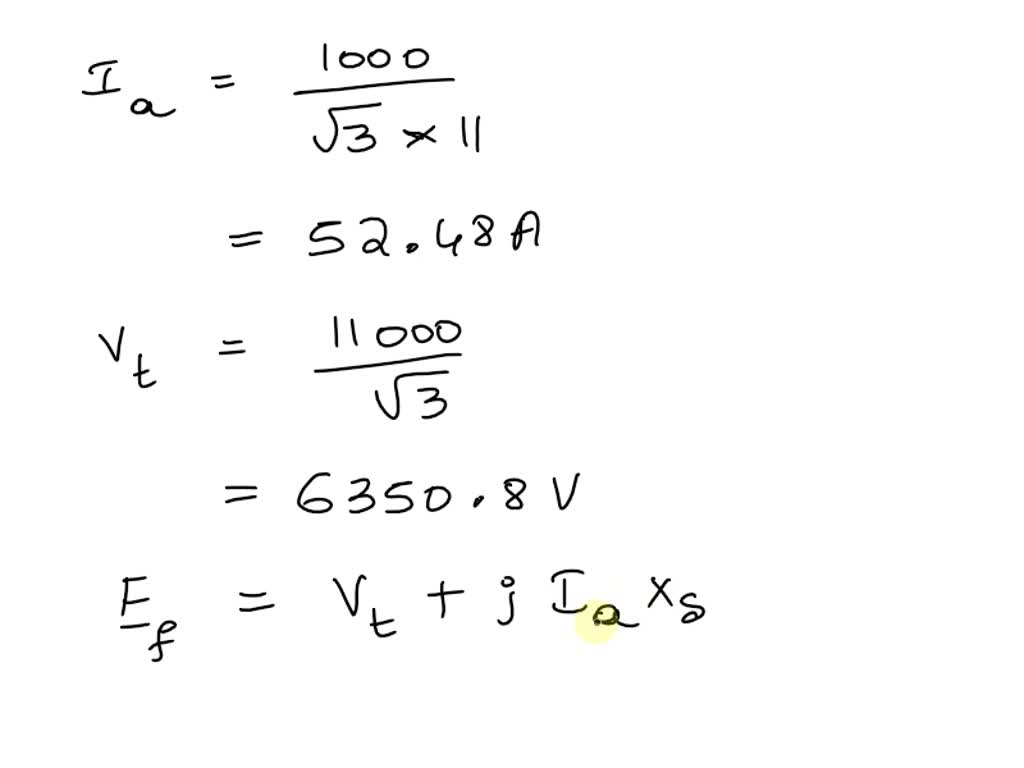 I_a = 1000 / √3 × 11
= 52.48 A
V_t = 11000 / √3
= 6350.8 V
E_f = V_t + j I_a X_s